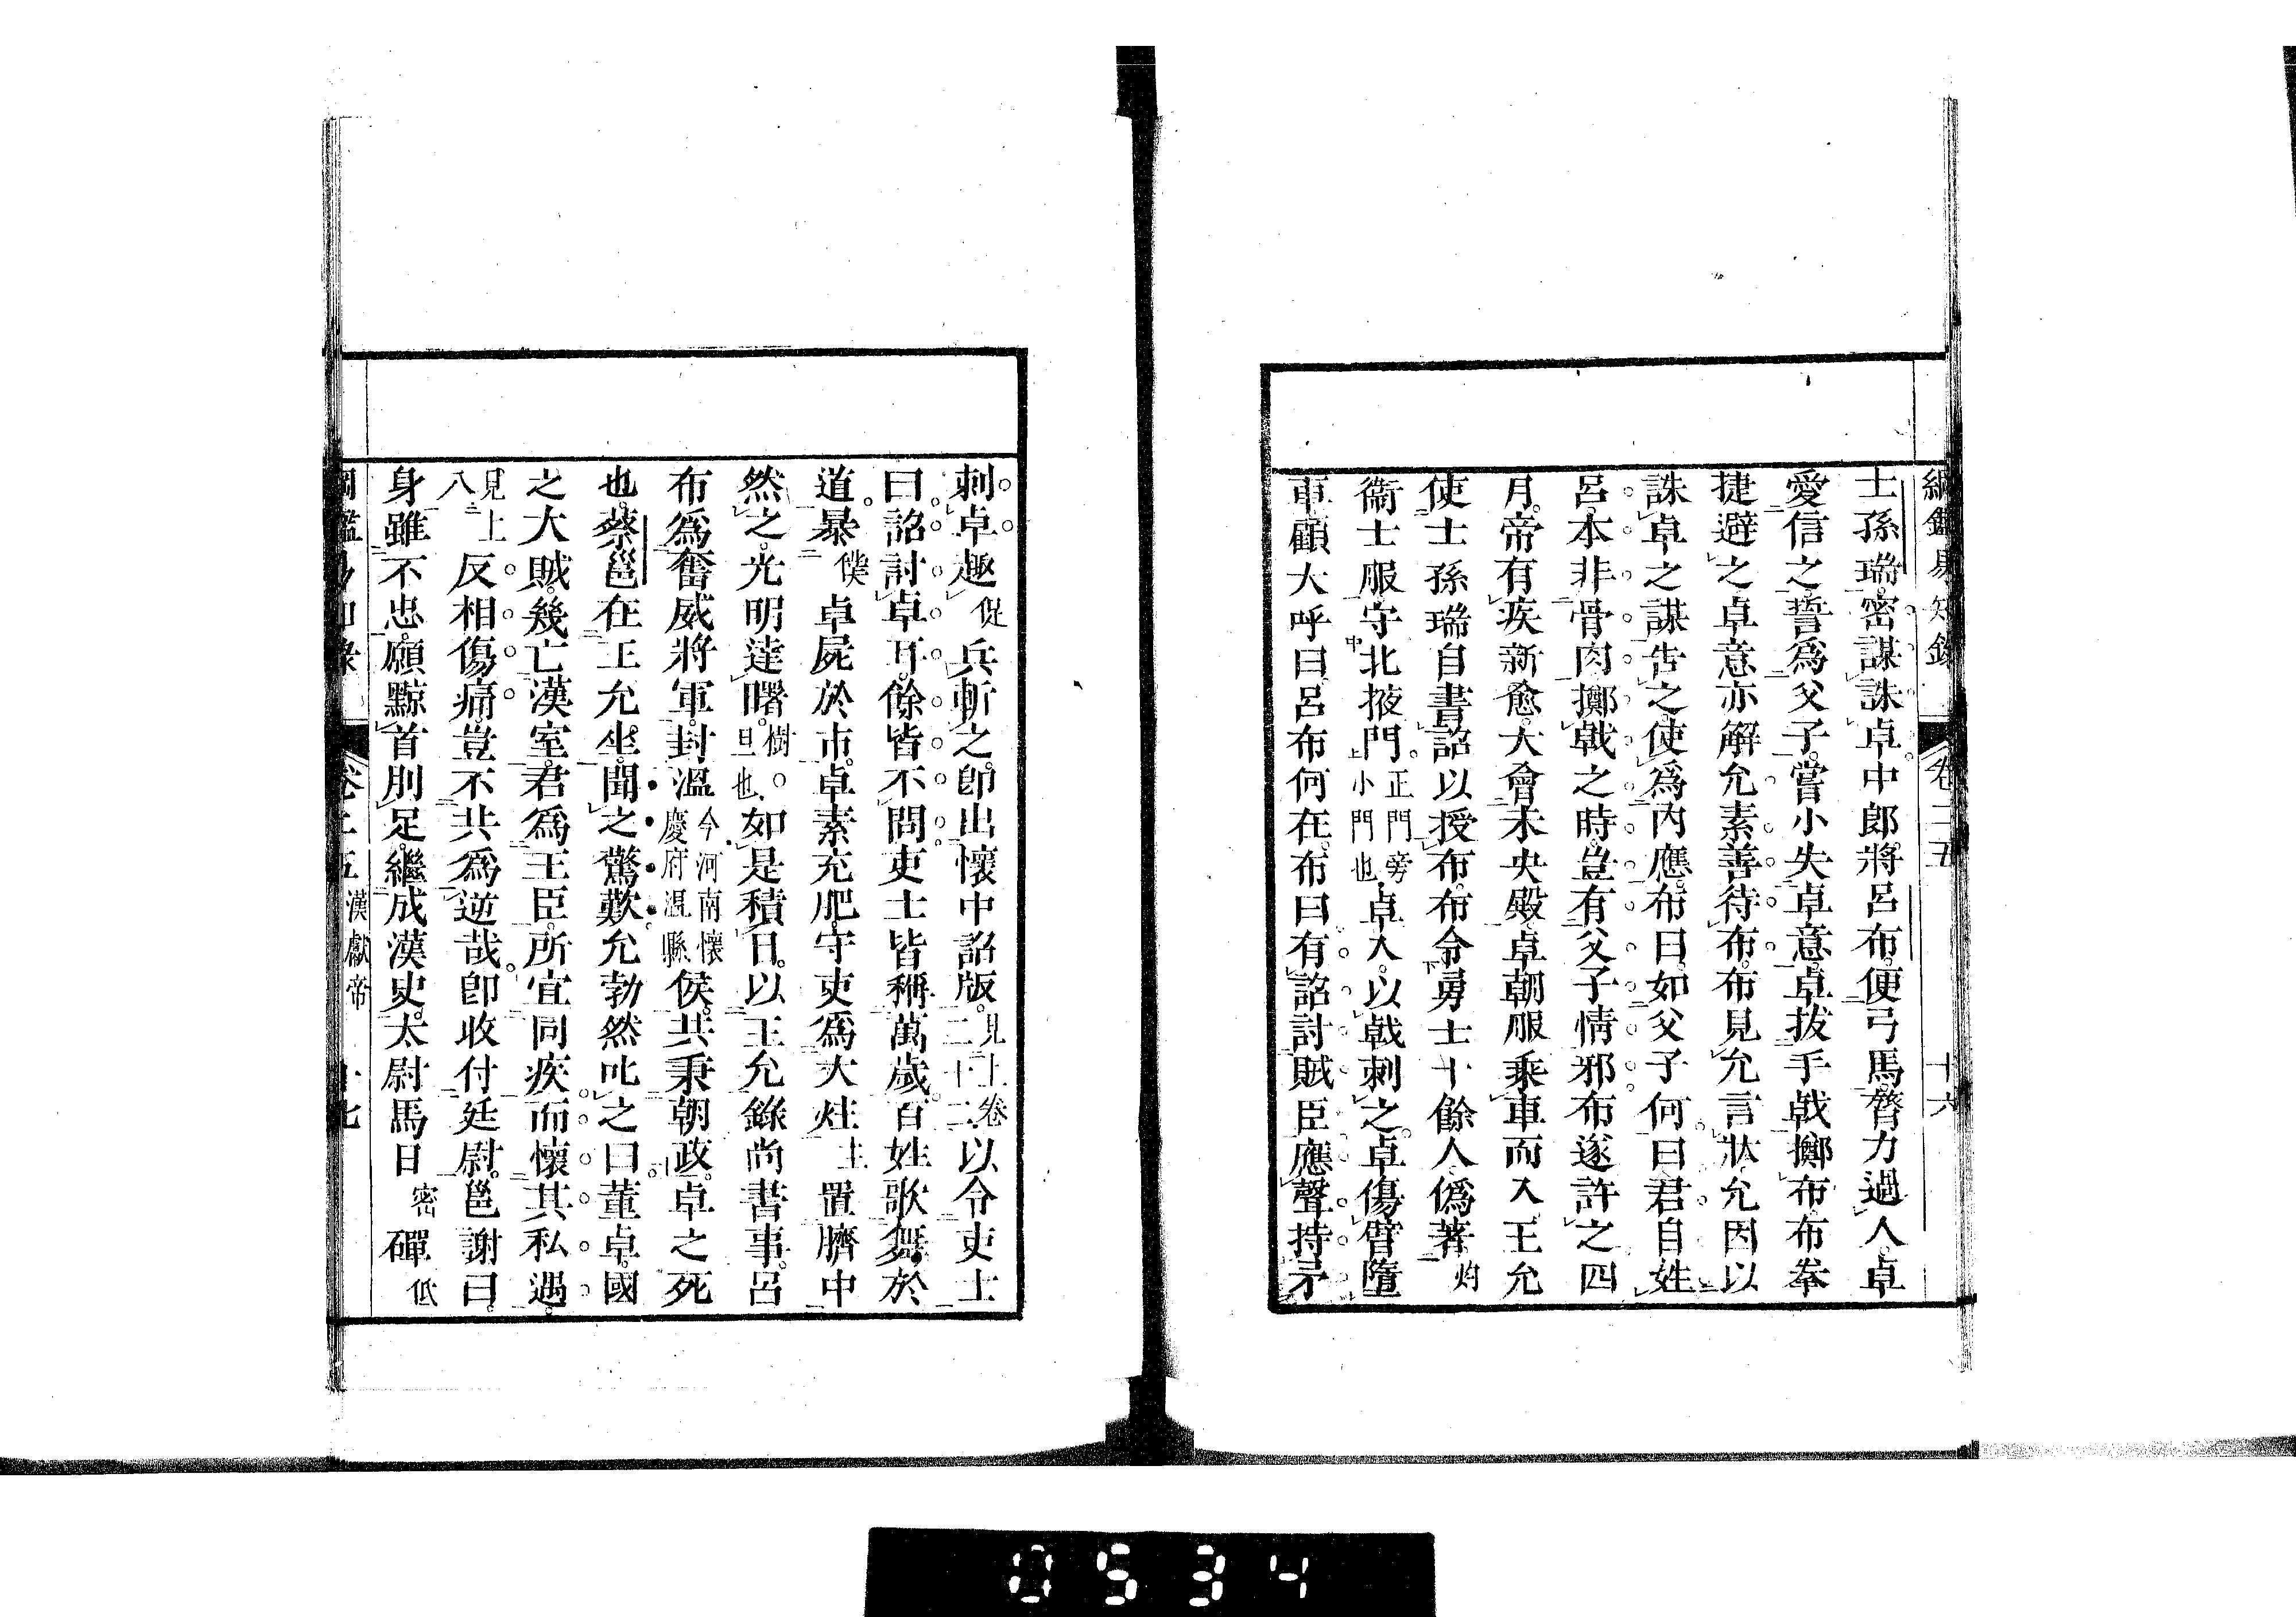 綱鑑易知錄 卷二五 十六
士孫瑞密謀誅卓中郎將呂布便弓馬膂力過人卓
愛信之誓爲父子嘗小失卓意卓拔手戟擲布布拳
捷避之卓意亦解允素善待布布見允言狀允因以
誅卓之謀告之使爲內應布曰如父子何曰君自姓
呂本非骨肉擲戟之時豈有父子情邪布遂許之四
月帝有疾新愈大會未央殿卓朝服乘車而入王允
使士孫瑞自書詔以授布布令勇士十餘人僞著灼
衞士服守北掖門正門旁小門也卓入以戟刺之卓傷臂墮
車顧大呼曰呂布何在布曰有詔討賊臣應聲持矛
刺卓趣促兵斬之卽出懷中詔版見上卷二十二以令吏士
曰詔討卓耳餘皆不問吏士皆稱萬歲百姓歌舞於
道暴僕卓屍於市卓素充肥守吏爲大炷主置臍中
然之光明達曙樹旦也如是積日以王允錄尚書事呂
布爲奮威將軍封溫今河南懷慶府溫縣侯共秉朝政卓之死
也蔡邕在王允坐聞之驚歎允勃然叱之曰董卓國
之大賊幾亡漢室君爲王臣所宜同疾而懷其私遇
見上八反相傷痛豈不共爲逆哉卽收付廷尉邕謝曰
身雖不忠願黥首刖足繼成漢史太尉馬日密磾低
綱鑑易知錄 卷二五 漢獻帝 十七
0534